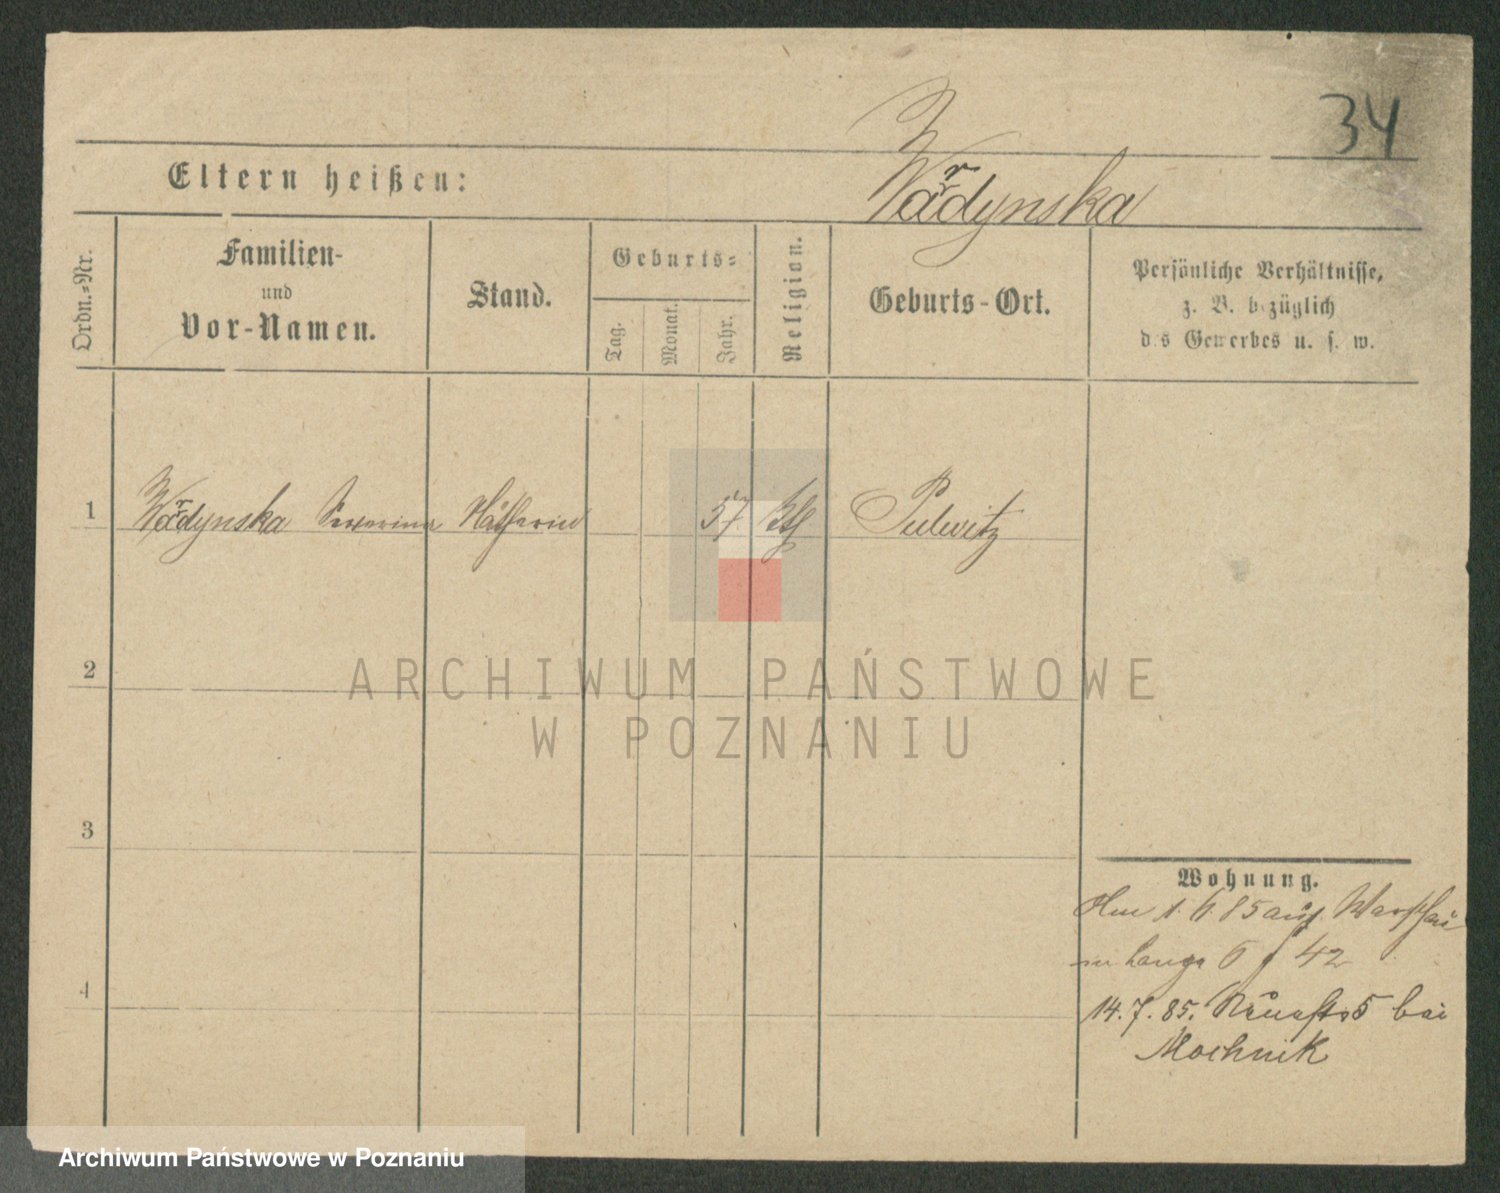 34
Eltern heißen:
Wardynska
Ordn.=Nr.
Familien-
und
Vor-Namen.
Stand.
Geburts=
Tag.
Monat.
Jahr.
Religion.
Geburts-Ort.
Persönliche Verhältnisse,
z. B. bezüglich
des Gewerbes u. s. w.
1 Wardynska Severina Nätherin 57 kth Pulwitz
2
3
4
Wohnung.
1. 6. 85 aus Warschau
Lange 42
14. 7. 85. 5 bei
Mochnik
ARCHIWUM PAŃSTWOWE
W POZNANIU
Archiwum Państwowe w Poznaniu